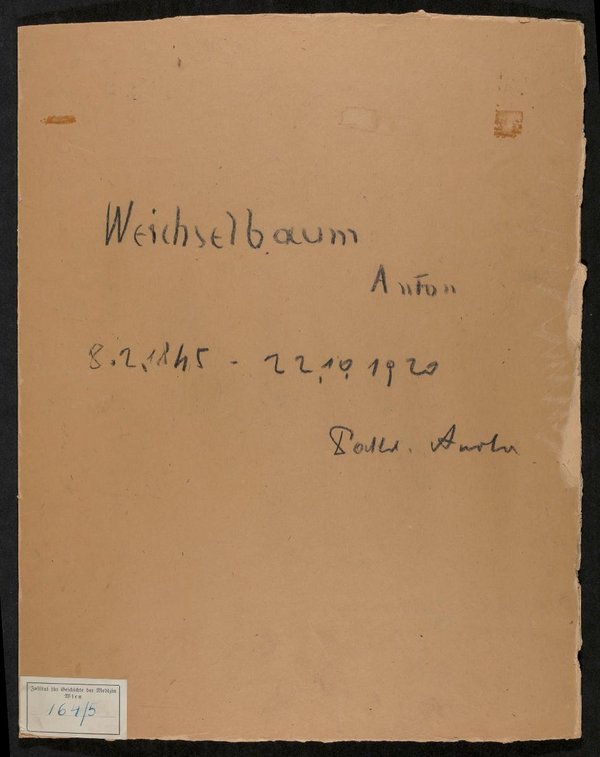 Weichselbaum
Anton
8.2.1845 - 22.10.1920
Path. Anat.
Institut für Geschichte der Medizin
Wien
164/5